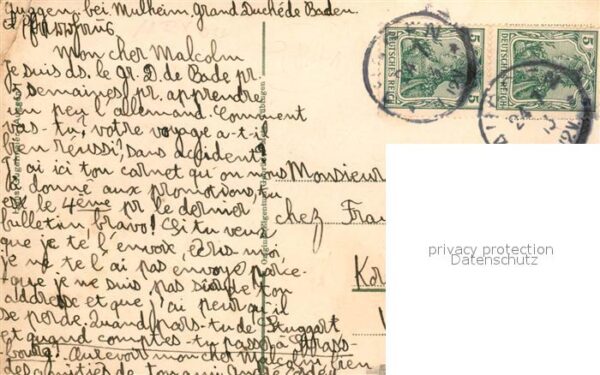 bei Mulheim. Grand Duché de Baden
Mon cher Malcolm
Je suis ds. le gr. D. de Bade pr.
semaines, pr. apprendre
un peu l'allemand. Comment
vas-tu, votre voyage a-t-il
bien réussi, sans accident
J'ai ici ton carnet qu'on nous
a donné aux promotions, tu
es le 4ème pr le dernier
bulletin, bravo! Si tu veux
que je te l'envoie, écris moi,
je ne te l'ai pas envoyé parce-
que je ne suis pas sûr de ton
addresse et que j'ai peur qu'il
se perde. Quand pars-tu de Stuggart
et quand comptes-tu passer à Strass-
bourg? Au revoir mon cher Malcolm, bien
des amitiés de ton ami André
Monsieur
chez Frau
DEUTSCHES REICH
5
5
privacy protection
Datenschutz